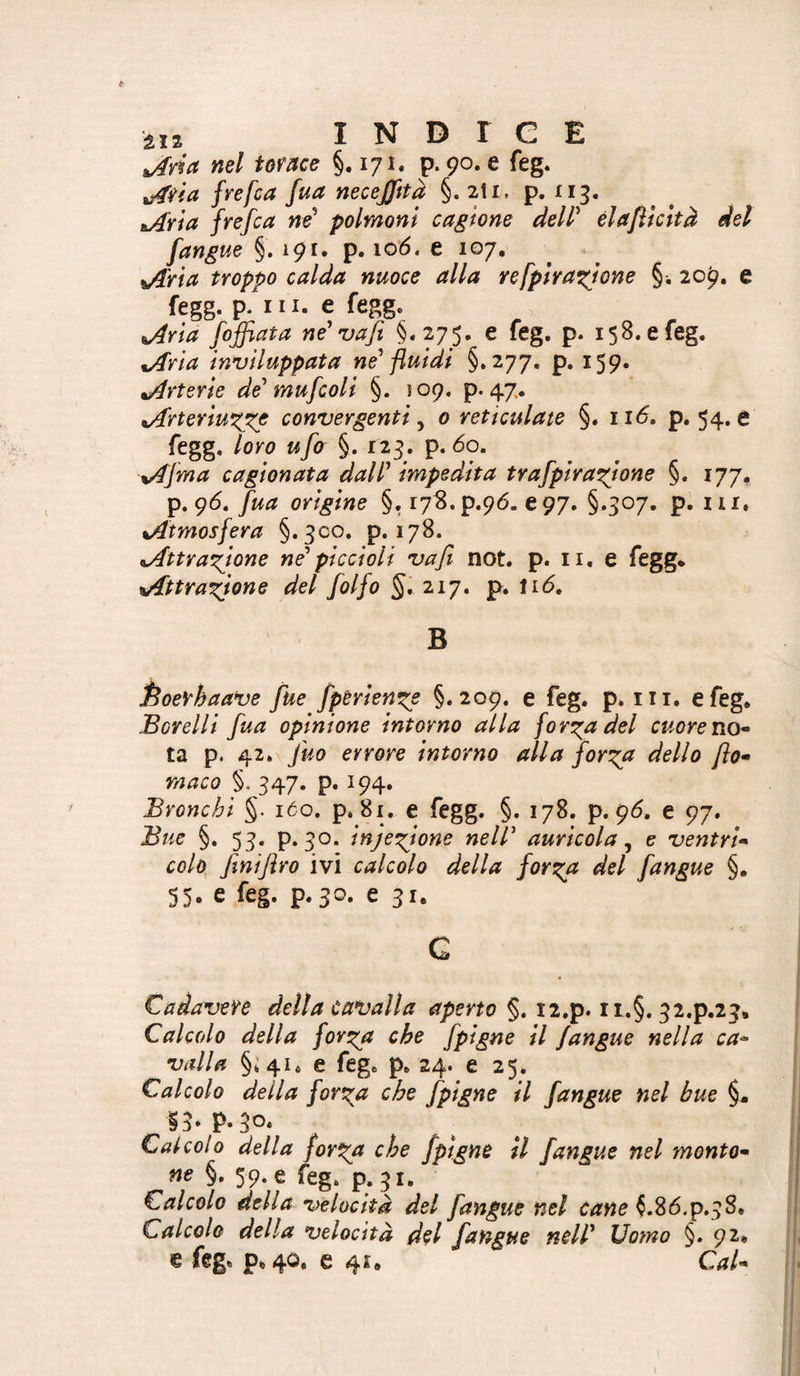 212 INDICE
Aria nel torace §. 171. p. 90. e ſeg.
Aria freſca ſua neceſſità §. 211. p. 113.
Aria freſca ne' polmoni cagione dell' elaſticità del
ſangue §. 191. p. 106. e 107.
Aria troppo calda nuoce alla reſpirazione §. 209. e
ſegg. p. 111. e ſegg.
Aria ſoffiata ne' vaſi §. 275. e ſeg. p. 158. e ſeg.
Aria inviluppata ne' fluidi §. 277. p. 159.
Arterie de' muſcoli §. 109. p. 47.
Arteriuzze convergenti, o reticulate §. 116. p. 54. e
ſegg. loro uſo §. 123. p. 60.
Aſma cagionata dall' impedita traſpirazione §. 177.
p. 96. ſua origine §. 178. p. 96. e 97. §. 307. p. 111.
Atmosfera §. 300. p. 178.
Attrazione ne' piccioli vaſi not. p. 11. e ſegg.
Attrazione del ſolfo §. 217. p. 116.
B
Boerhaave ſue ſperienze §. 209. e ſeg. p. 111. e ſeg.
Borelli ſua opinione intorno alla forza del cuore no-
ta p. 42. ſuo errore intorno alla forza dello ſto-
maco §. 347. p. 194.
Bronchi §. 160. p. 81. e ſegg. §. 178. p. 96. e 97.
Bue §. 53. p. 30. injezione nell' auricola, e ventri-
colo ſiniſtro ivi calcolo della forza del ſangue §.
55. e ſeg. p. 30. e 31.
C
Cadavere della cavalla aperto §. 12. p. 11. §. 32. p. 23.
Calcolo della forza che ſpigne il ſangue nella ca-
valla §. 41. e ſeg. p. 24. e 25.
Calcolo della forza che ſpigne il ſangue nel bue §.
53. p. 30.
Calcolo della forza che ſpigne il ſangue nel monto-
ne §. 59. e ſeg. p. 31.
Calcolo della velocità del ſangue nel cane §. 86. p. 38.
Calcolo della velocità del ſangue nell' Uomo §. 92.
e ſeg. p. 40. e 41. Cal-